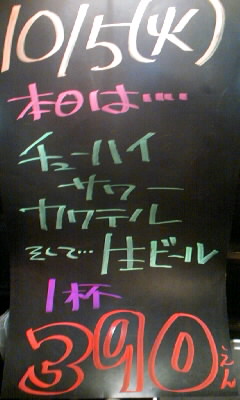 10/5(火)
本日は…
チューハイ
サワー
カクテル
そして…生ビール
1杯
390えん